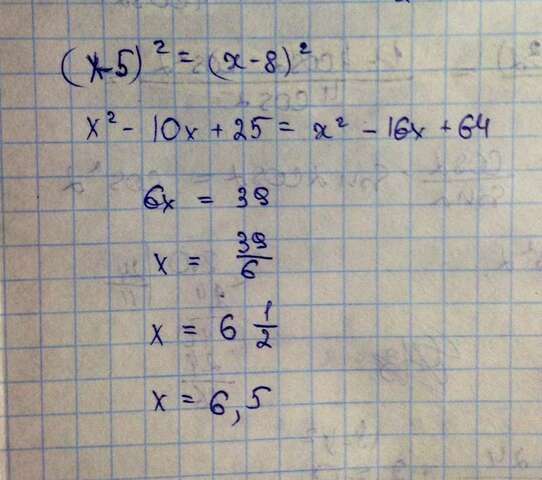 (x-5)² = (x-8)²
x² - 10x + 25 = x² - 16x + 64
6x = 39
x = 39/6
x = 6 1/2
x = 6,5